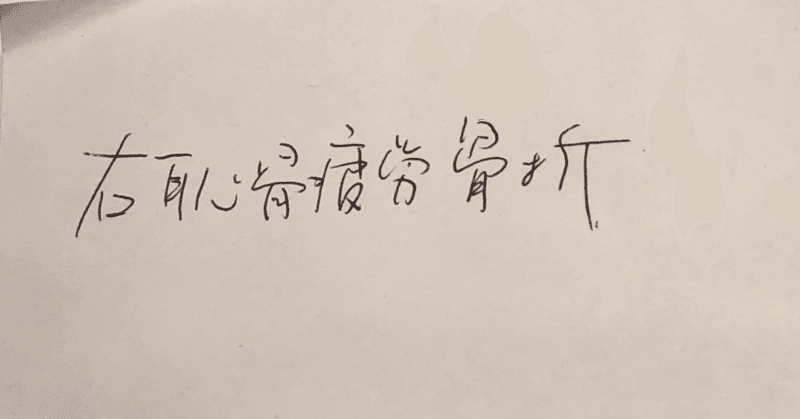 右恥骨疲労骨折